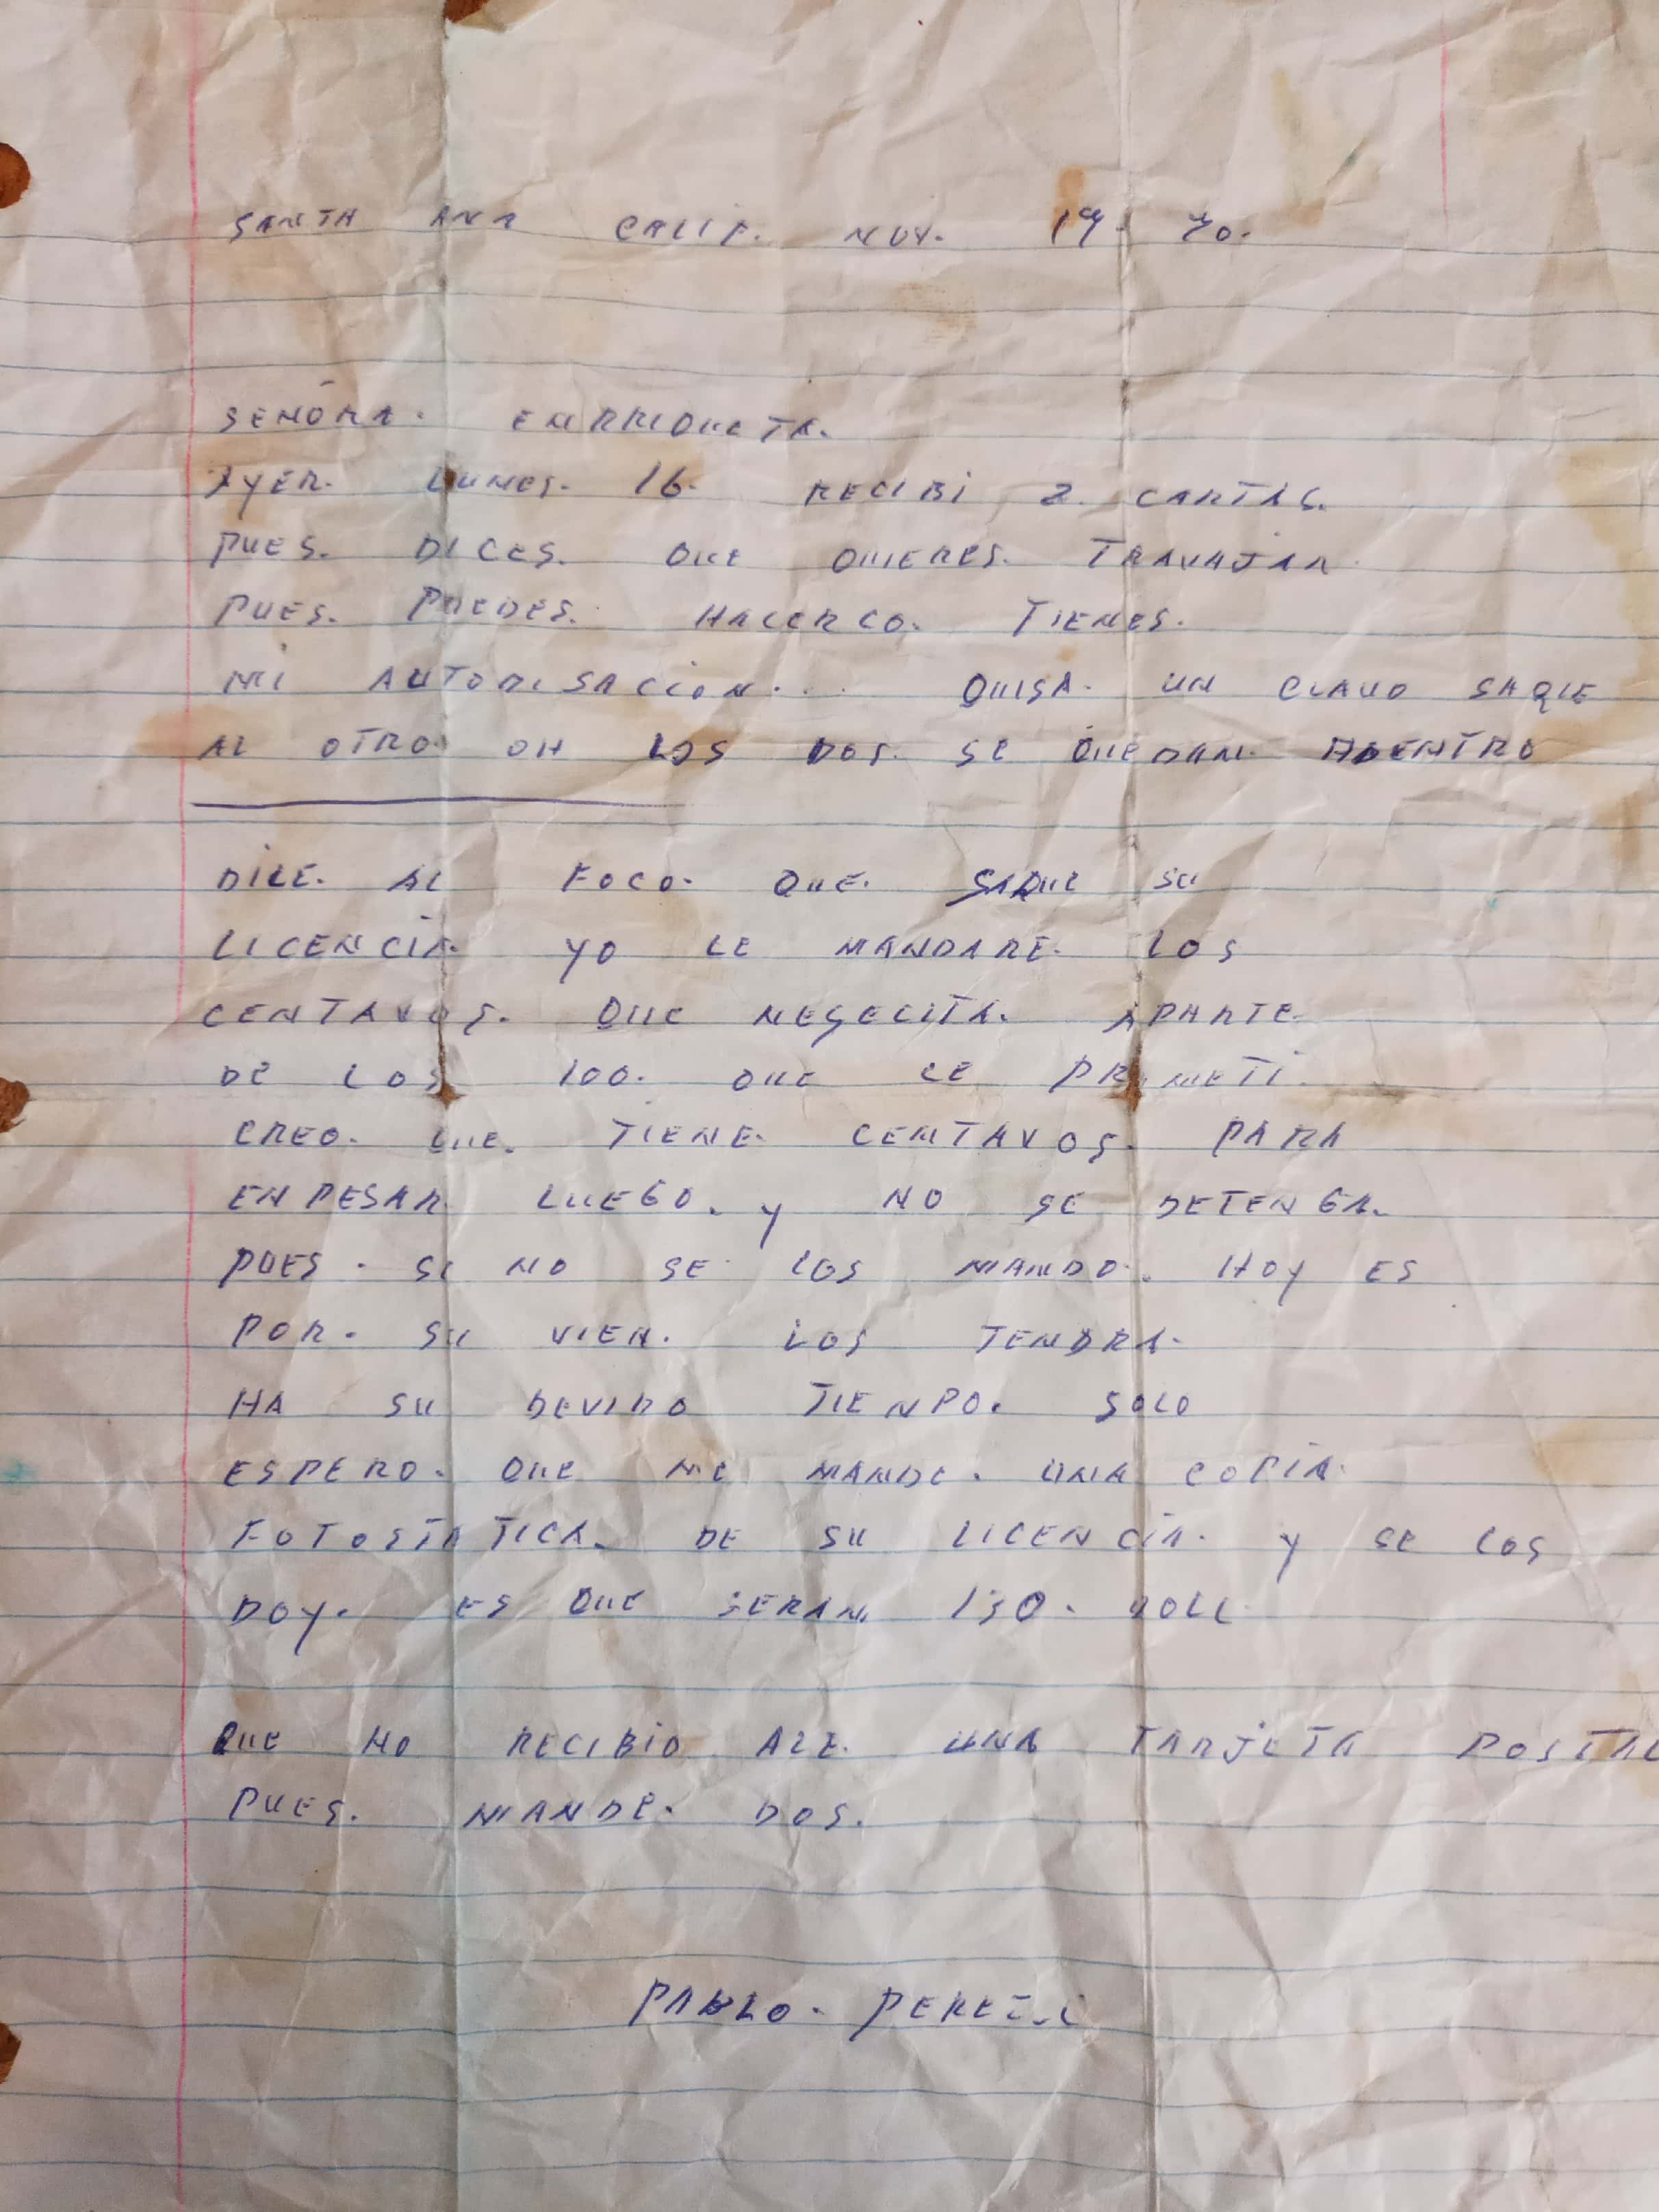 SANTA ANA CALIF. NOV. 17 70.
SEÑORA. ENRRIQUETA.
AYER. LUNES. 16. RECIBI 2 CARTAS.
PUES. DICES. QUE QUIERES. TRAVAJAR
PUES. PUEDES. HACERLO. TIENES.
MI AUTORISACION... QUISA. UN CLAVO SAQUE
AL OTRO. OH LOS DOS. SE QUEDAN. ADENTRO
DILE. AL FOCO. QUE. SAQUE SU
LICENCIA. YO LE MANDARE. LOS
CENTAVOS. QUE NESECITA. APARTE
DE LOS 100. QUE LE PROMETI.
CREO. QUE. TIENE. CENTAVOS. PARA
ENPESAR LUEGO. Y NO SE DETENGA.
PUES. SI NO SE LOS MANDO. HOY ES
POR. SU VIEN. LOS TENDRA.
HA SU DEVIDO TIENPO. SOLO
ESPERO. QUE ME MANDE. UNA COPIA.
FOTOSTATICA. DE SU LICENCIA. Y SE LOS
DOY. ES QUE SERAN 130. DOLL
QUE NO RECIBIO ALE. UNA TARJETA POSTAL
PUES. MANDE. DOS.
PABLO. PEREZ.